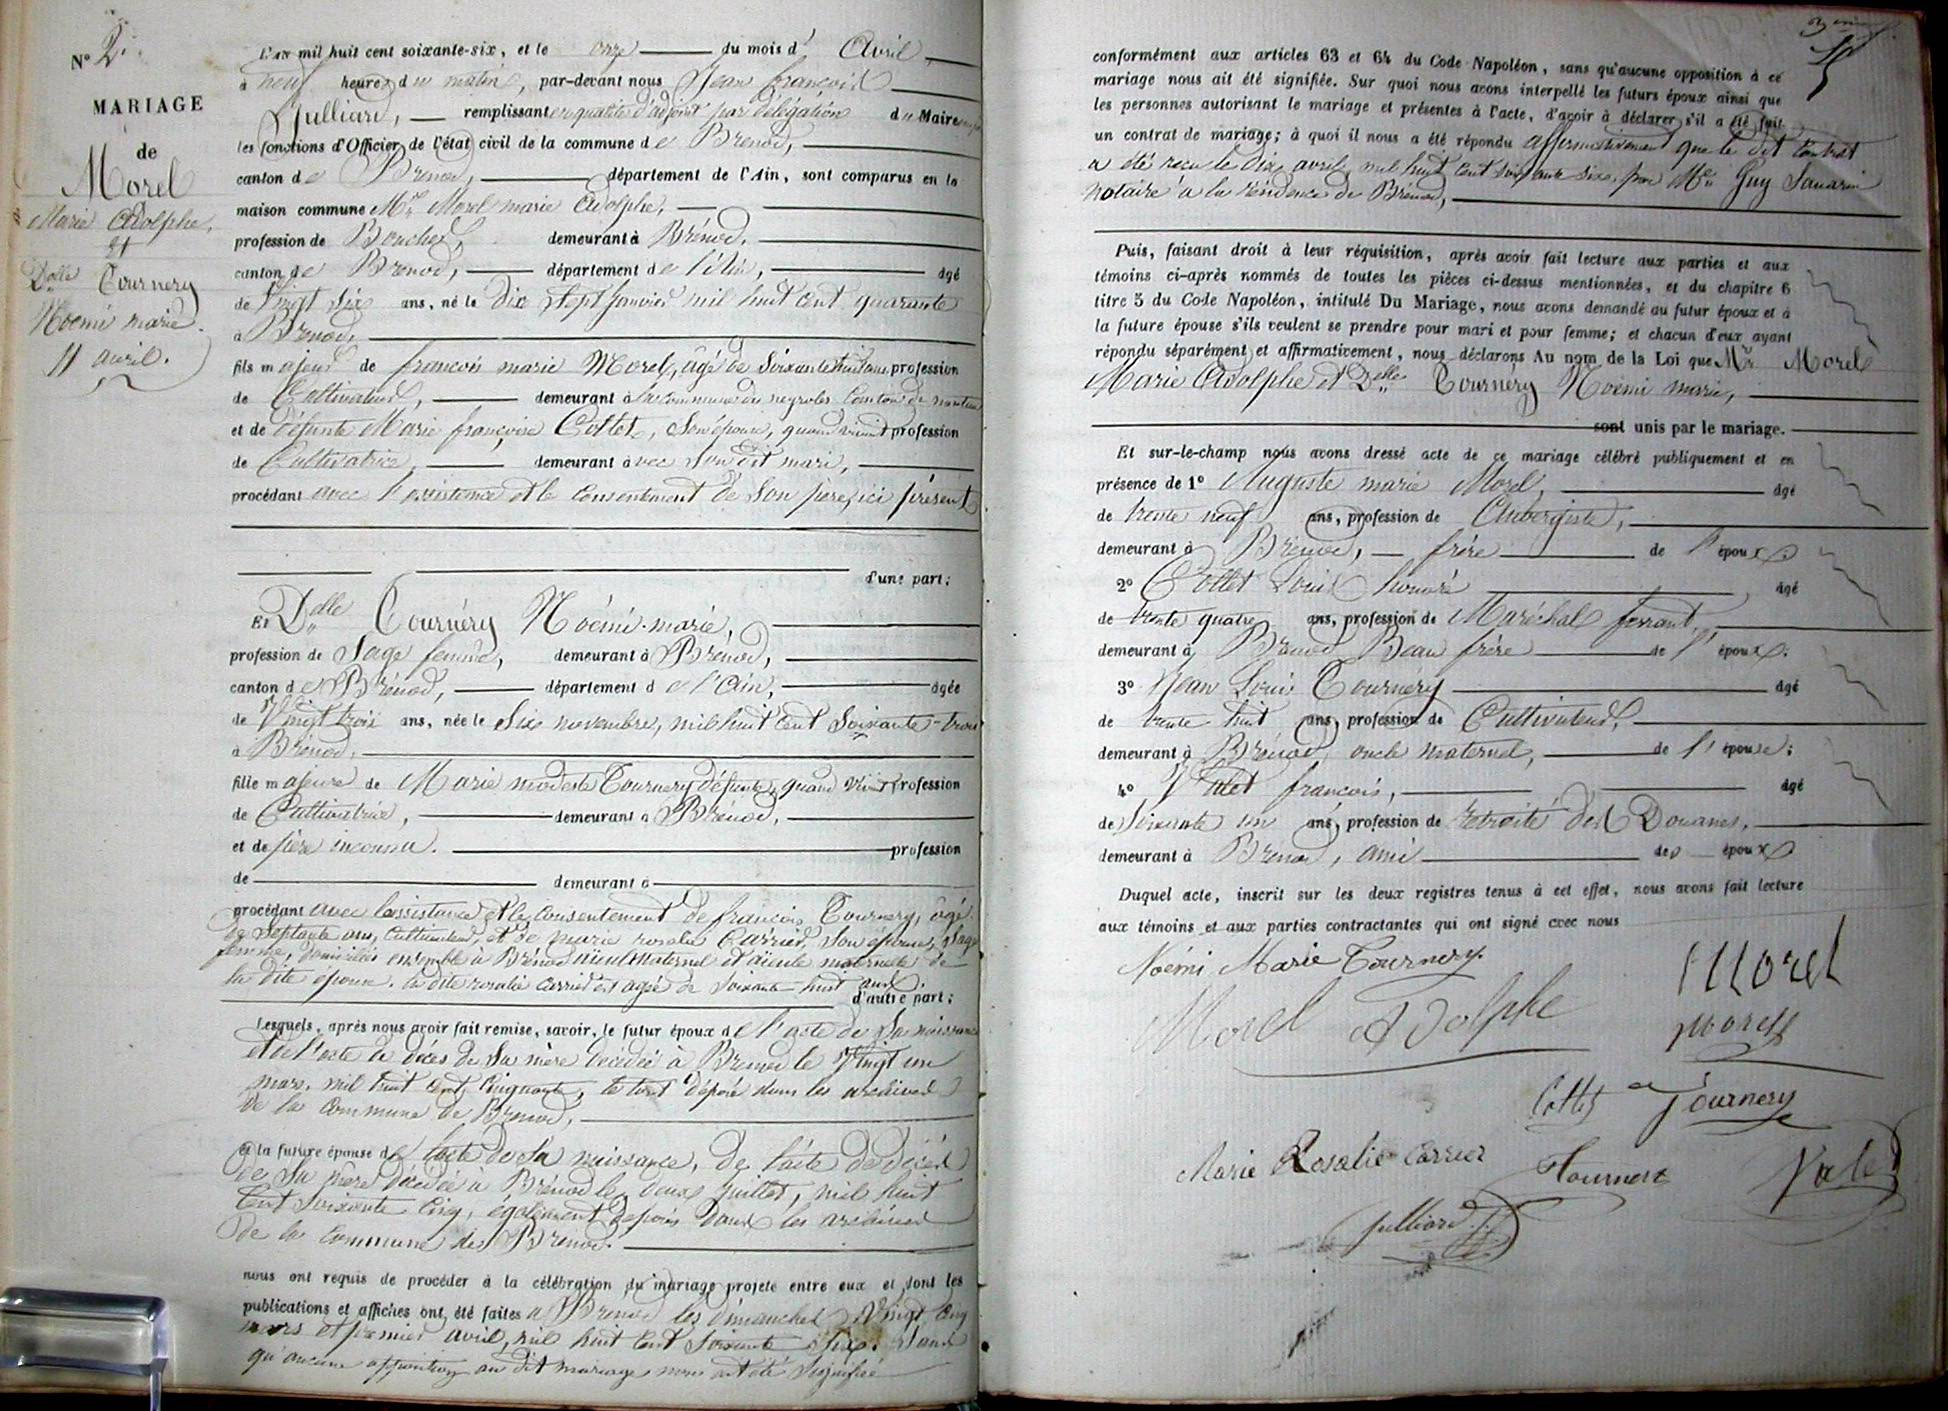 N° 2.
MARIAGE
de
Morel
Marie Adolphe,
et
Delle Tournery
Noémi marie.
11 avril.
L'an mil huit cent soixante-six, et le onze du mois d' Avril,
à neuf heures du matin, par-devant nous Jean françois
Julliard, remplissant en qualité d'adjoint par délégation du Maire
les fonctions d'Officier de l'état civil de la commune de Brénod,
canton de Brenod, département de l'Ain, sont comparus en la
maison commune Mr Morel marie Adolphe,
profession de Boucher, demeurant à Brénod,
canton de Brenod, département de l'Ain, âgé
de Vingt six ans, né le dix sept Janvier mil huit cent quarante
à Brenod,
fils majeur de francois marie Morel, âgé de Soixante huit ans, profession
de Cultivateur, demeurant à la commune des neyroles Canton de nantua
et de défunte Marie françoise Cottet, Son épouse, quand vivait profession
de Cultivatrice, demeurant avec Son dit mari,
procédant avec l'assistance et le Consentement de Son père, ici présent
d'une part;
Et Delle Tournéry Noémi-marie,
profession de Sage femme, demeurant à Brénod,
canton de Brénod, département de l'Ain, âgée
de Vingt trois ans, née le Six novembre, mil huit Cent Soixante-trois
à Brénod,
fille majeure de Marie modeste Tournery défunte, quand vivait profession
de Cultivatrice, demeurant à Brénod,
et de père inconnu. profession
de demeurant à
procédant avec l'assistance et le consentement de francois Tournery, âgé
de Septante ans, Cultivateur, et de marie rosalie Carrier, Son épouse, Sage
femme, domiciliés ensemble à Brénod aïeul maternel et aïeule maternelle de
la dite épouse. la dite rosalie carrier est agée de Soixante huit ans.
d'autre part;
Lesquels, après nous avoir fait remise, savoir, le futur époux de l'acte de Sa naissance
et de l'acte de décès de Sa mère décédée à Brenod le Vingt un
mars, mil huit cent Cinquante, le tout déposé dans les archives
de la Commune de Brenod,
et la future épouse de l'acte de Sa naissance, de l'acte de décès
de Sa mère décédée à Brénod le deux Juillet, mil huit
Cent Soixante Cinq, également déposés dans les archives
de la Commune de Brenod.
nous ont requis de procéder à la célébration du mariage projeté entre eux et dont les
publications et affiches ont été faites à Brenod les dimanches Vingt Cinq
mars et premier avril, mil huit Cent Soixante Six. Sans
qu'aucune opposition au dit mariage nous ait été Signifiée
conformément aux articles 63 et 64 du Code Napoléon, sans qu'aucune opposition à ce
mariage nous ait été signifiée. Sur quoi nous avons interpellé les futurs époux ainsi que
les personnes autorisant le mariage et présentes à l'acte, d'avoir à déclarer s'il a été fait
un contrat de mariage; à quoi il nous a été répondu affirmativement que le dit Contrat
a été reçu le dix avril, mil huit Cent Soixante Six, par Me Guy
notaire à la résidence de Brénod,
Puis, faisant droit à leur réquisition, après avoir fait lecture aux parties et aux
témoins ci-après nommés de toutes les pièces ci-dessus mentionnées, et du chapitre 6
titre 5 du Code Napoléon, intitulé Du Mariage, nous avons demandé au futur époux et à
la future épouse s'ils veulent se prendre pour mari et pour femme; et chacun d'eux ayant
répondu séparément et affirmativement, nous déclarons Au nom de la Loi que Mr Morel
Marie Adolphe et Delle Tournéry Noémi marie,
sont unis par le mariage.
Et sur-le-champ nous avons dressé acte de ce mariage célébré publiquement et en
présence de 1° Auguste marie Morel, âgé
de trente neuf ans, profession de Aubergiste,
demeurant à Brénod, frère de l'époux;
2° Cottet Louis honoré âgé
de trente quatre ans, profession de Maréchal ferrant,
demeurant à Brenod, Beau frère de l'époux;
3° Jean Louis Tournéry âgé
de trente huit ans, profession de Cultivateur,
demeurant à Brénod, oncle maternel, de l'épouse;
4° Valet françois, âgé
de Soixante un ans, profession de retraité des Douanes,
demeurant à Brenod, ami des époux
Duquel acte, inscrit sur les deux registres tenus à cet effet, nous avons fait lecture
aux témoins et aux parties contractantes qui ont signé avec nous
Noémi Marie Tournery.
Morel
Morel Adolphe
Morel
Cottet Tournery
Marie Rosalie Carrier Tournery Valet
Julliard